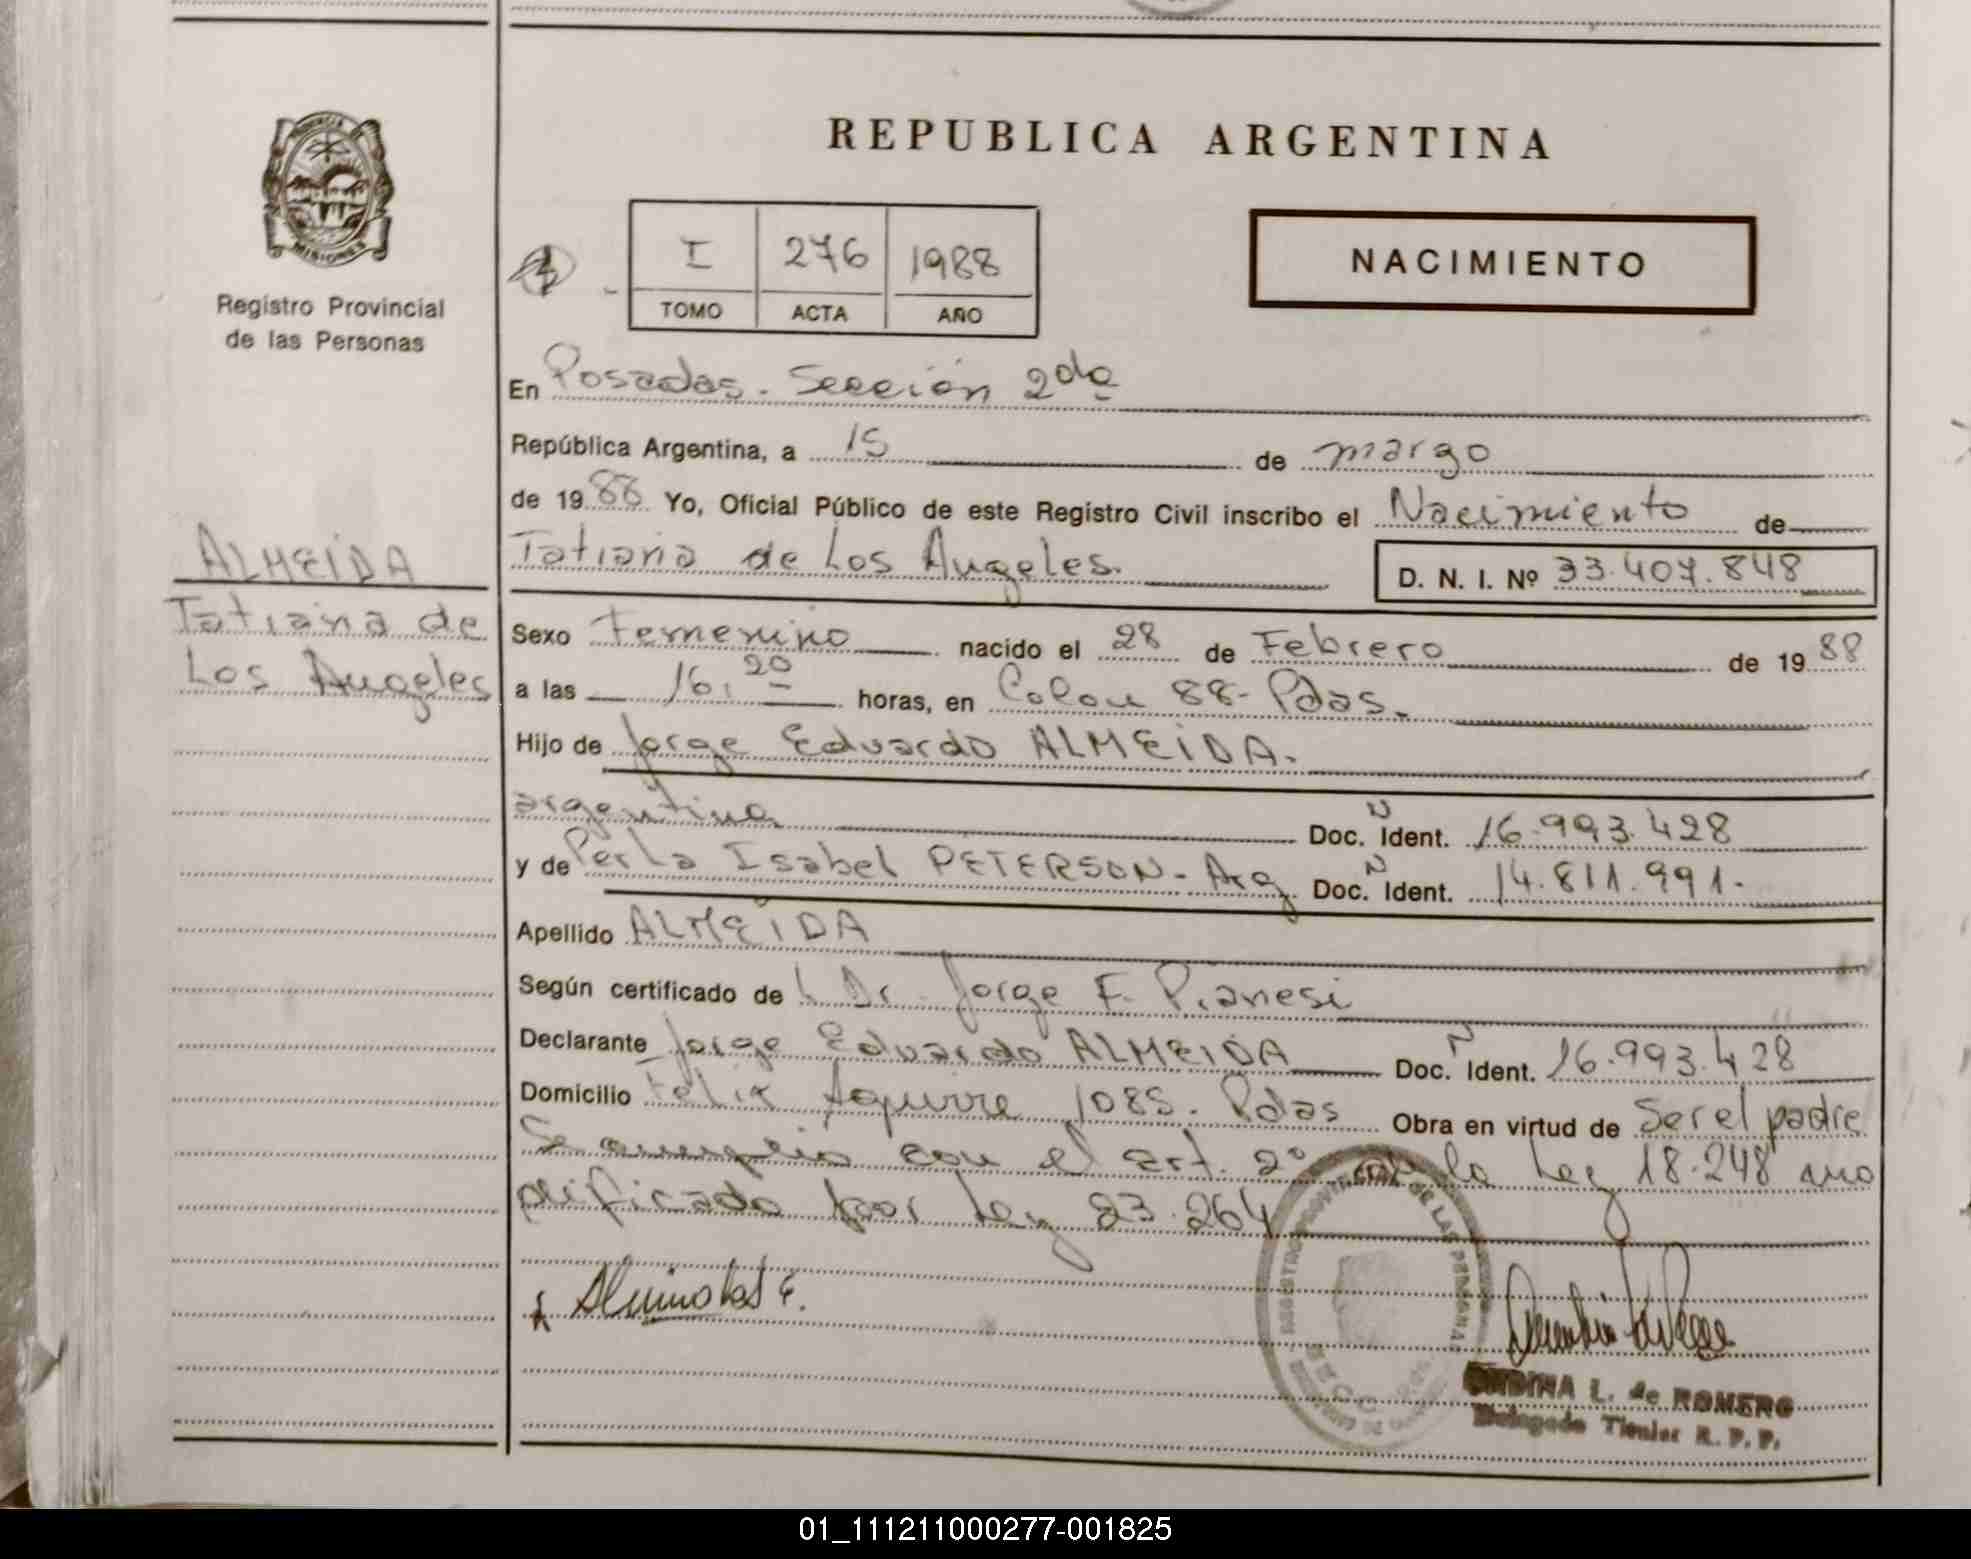 REPUBLICA ARGENTINA
PROVINCIA DE
MISIONES
Registro Provincial
de las Personas
I 276 1988
TOMO ACTA AÑO
NACIMIENTO
En Posadas. Sección 2da
República Argentina, a 15 de marzo
de 1988 Yo, Oficial Público de este Registro Civil inscribo el Nacimiento de
Tatiana de Los Angeles. D. N. I. Nº 33.407.848
ALMEIDA
Tatiana de
Los Angeles
Sexo Femenino nacido el 28 de Febrero de 1988
a las 16,20 horas, en Colon 88- Pdas.
Hijo de Jorge Eduardo ALMEIDA.
argentina Doc. N Ident. 16.993.428
y de Perla Isabel PETERSON - Arg Doc. N Ident. 14.811.991.
Apellido ALMEIDA
Según certificado de Dr. Jorge F. Pianesi
Declarante Jorge Eduardo ALMEIDA Doc. N Ident. 16.993.428
Domicilio Felix Aguirre 1085. Pdas Obra en virtud de Ser el padre
Se cumplio con el art. 2º de la Ley 18.248 mo
dificado por Ley 23.264
L. de ROMERO
Delegada Titular R. P. P.
01_111211000277-001825